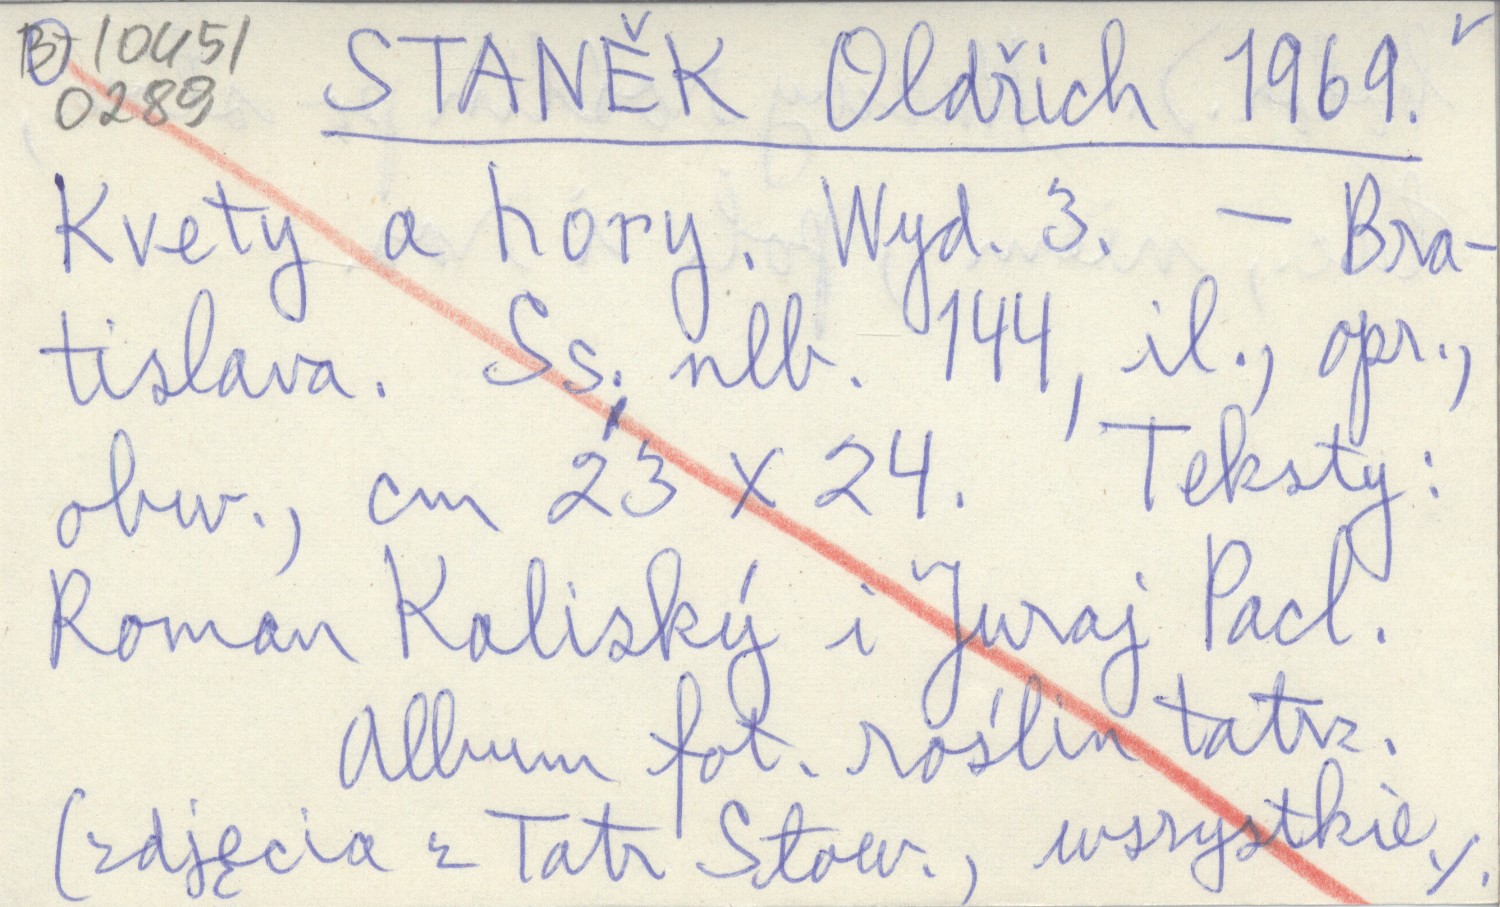 B 10451
0289
STANĚK Oldřich 1969.
Kvety a hory. Wyd. 3. — Bra-
tislava. Ss. nlb. 144, il., opr.,
obw., cm 23 x 24. Teksty:
Roman Kaliský i Juraj Pacl.
Album fot. roślin tatrz.
(zdjęcia z Tatr Słow., wszystkie).